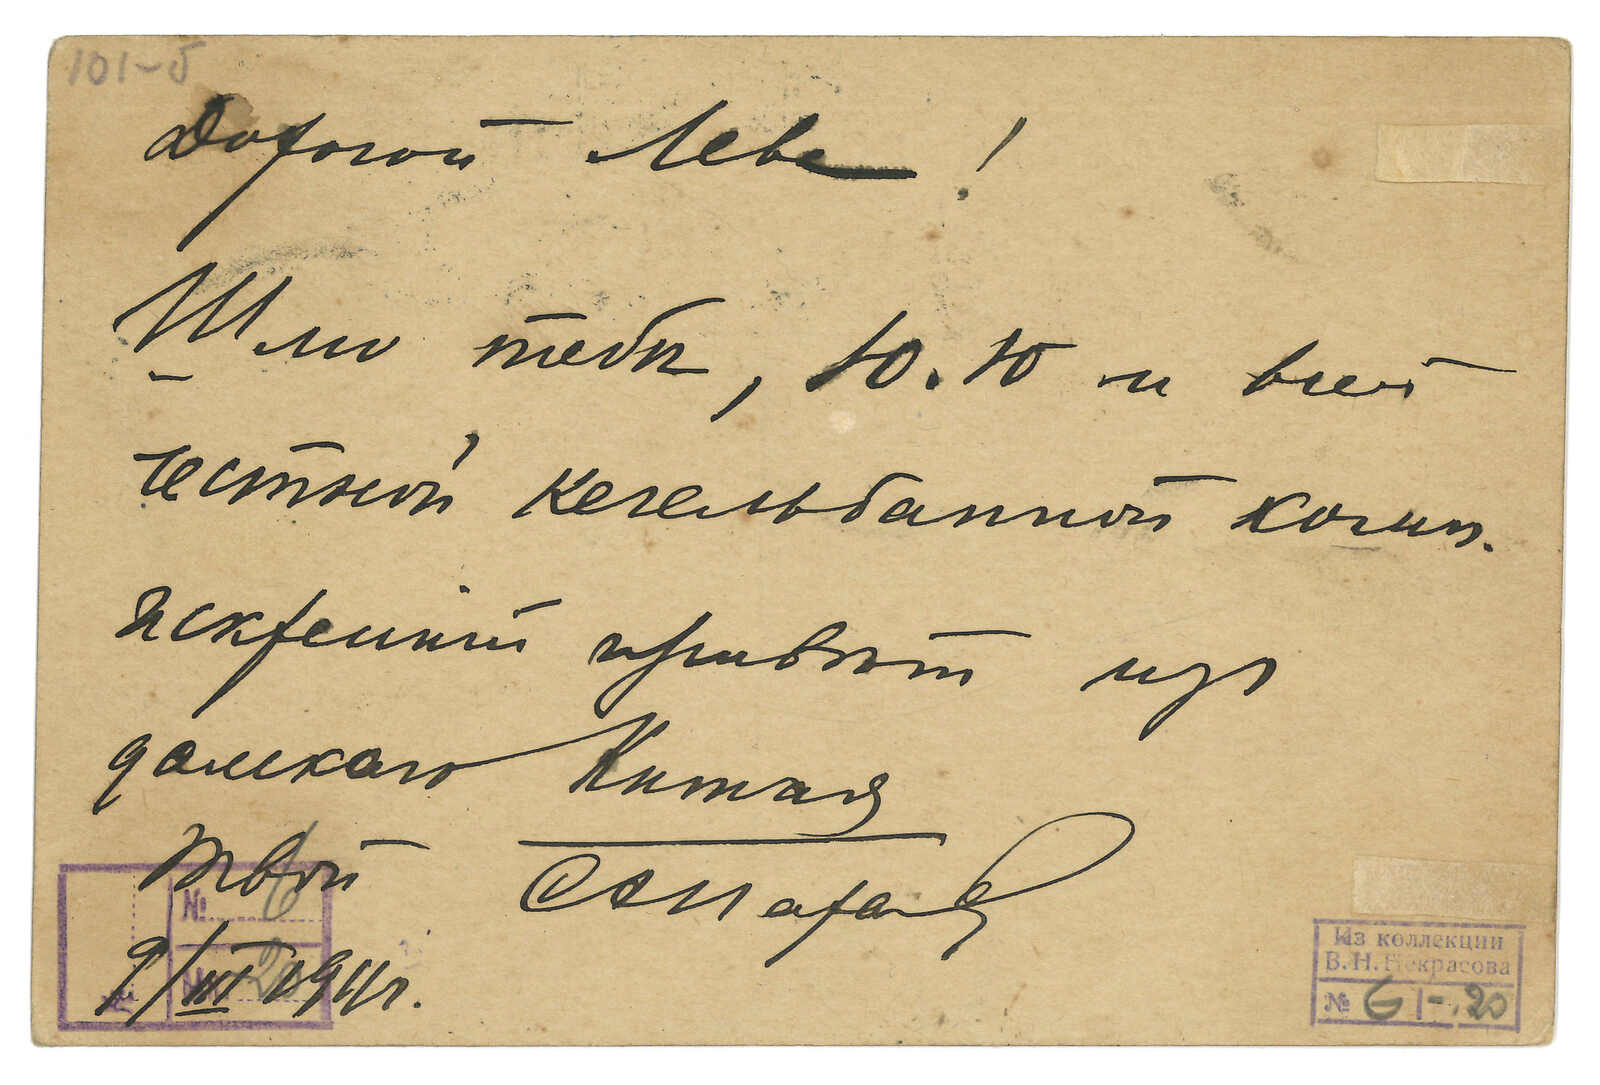 101-б
Дорогой Лева!
Шлю тебѣ, Ю. Ю и всей
честной кегельбанной комп.
искренний привѣт изъ
далекаго Китая
Твой
9/III 1911г.
№ 6
№ 20
Из коллекции
В. Н. Некрасова
№ G 1-20